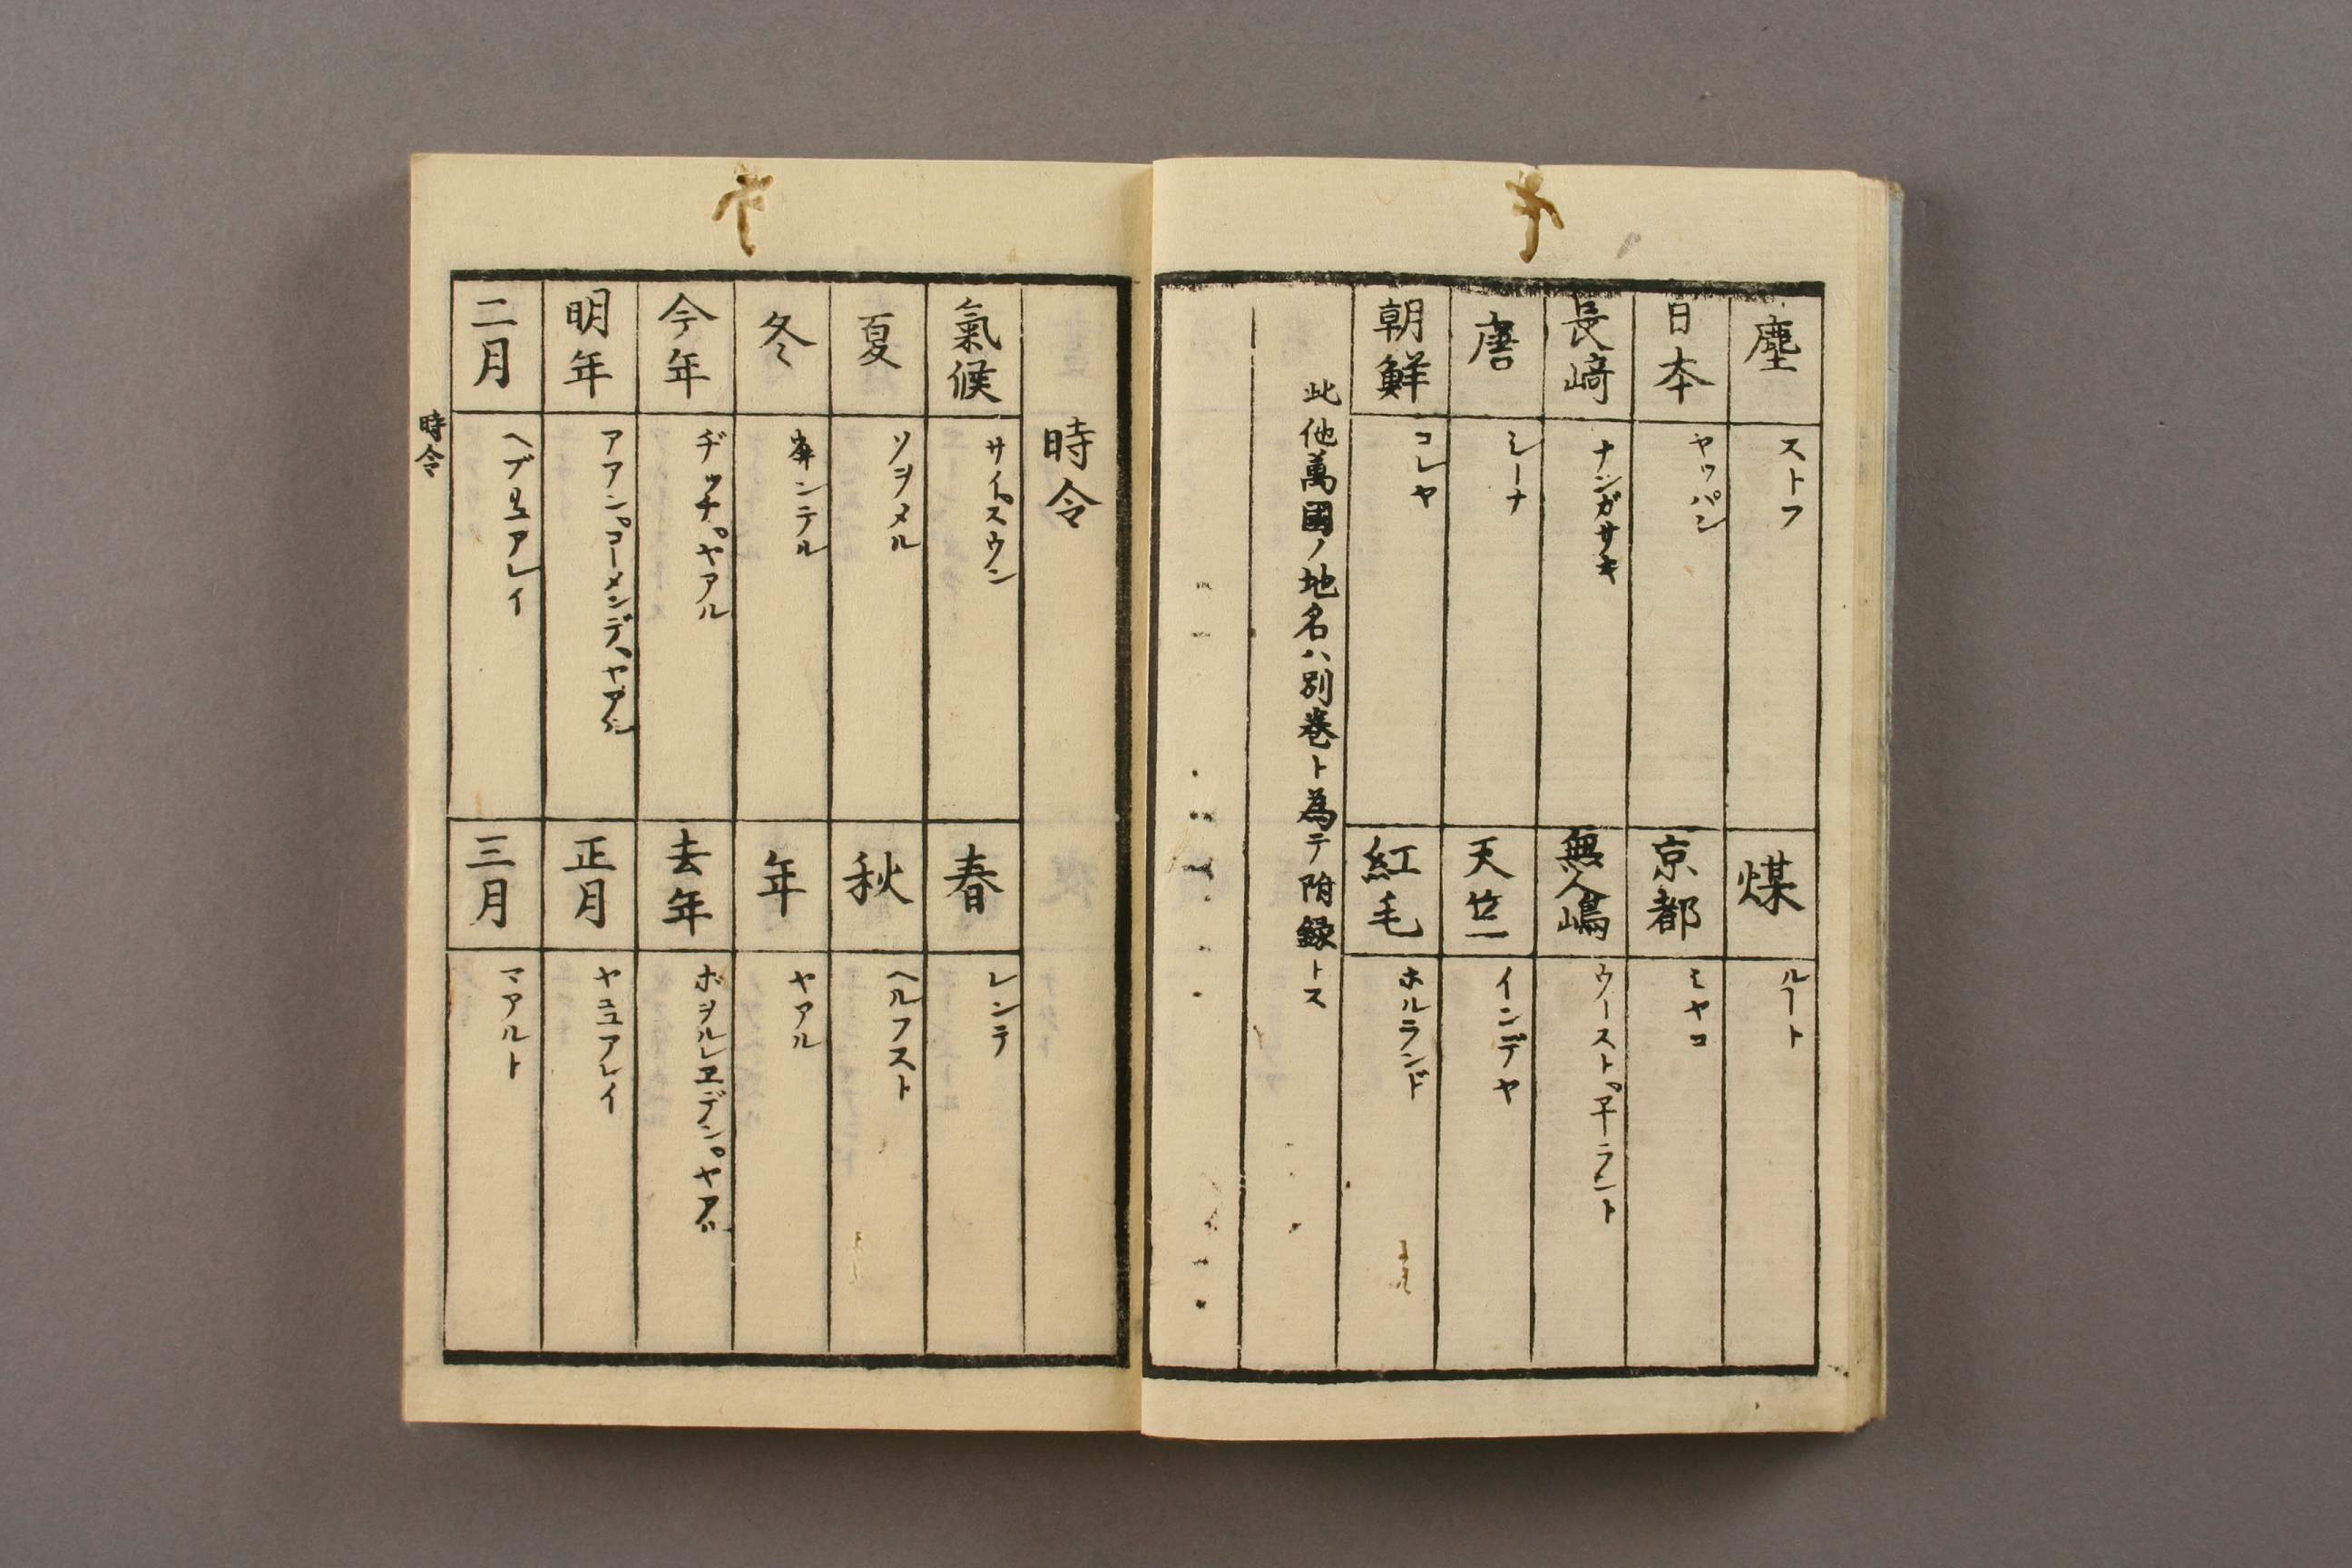 塵 ストフ
煤 ルート
日本 ヤッパン
京都 ミヤコ
長﨑 ナンガサキ
無人嶋 ウースト。ヱイラント
唐 シーナ
天竺 インデヤ
朝鮮 コレヤ
紅毛 ホルランド
此他萬國ノ地名ハ別巻ト為テ附録トス
時令
氣候 サイスウン
春 レンテ
夏 ソヲメル
秋 ヘルフスト
冬 ヰンテル
年 ヤアル
今年 ヂッチ。ヤアル
去年 ボヲルレヱデン。ヤアル
明年 アアン。コーメンデ、ヤアル
正月 ヤニュアレイ
二月 ヘブリュアレイ
三月 マアルト
時令